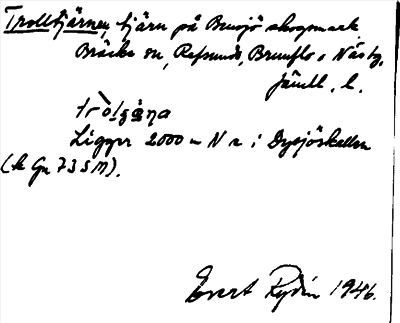 Trolltjärnen, tjärn på Bensjö skogsmark
Bräcke sn, Refsunds, Brunflo o Näs tg,
Jämtl. l.
Ligger 2000 m N r i Dysjöskallen
(k Gn 73 S M).
Evert Rydin 1946.